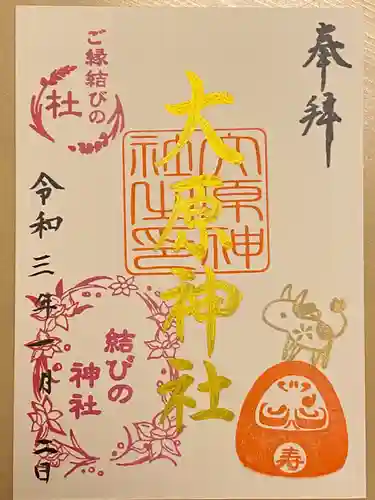 奉拝
大原神社
大原神
社之印
ご縁結びの
杜
令和三年一月二日
ご縁
結びの
神社
寿